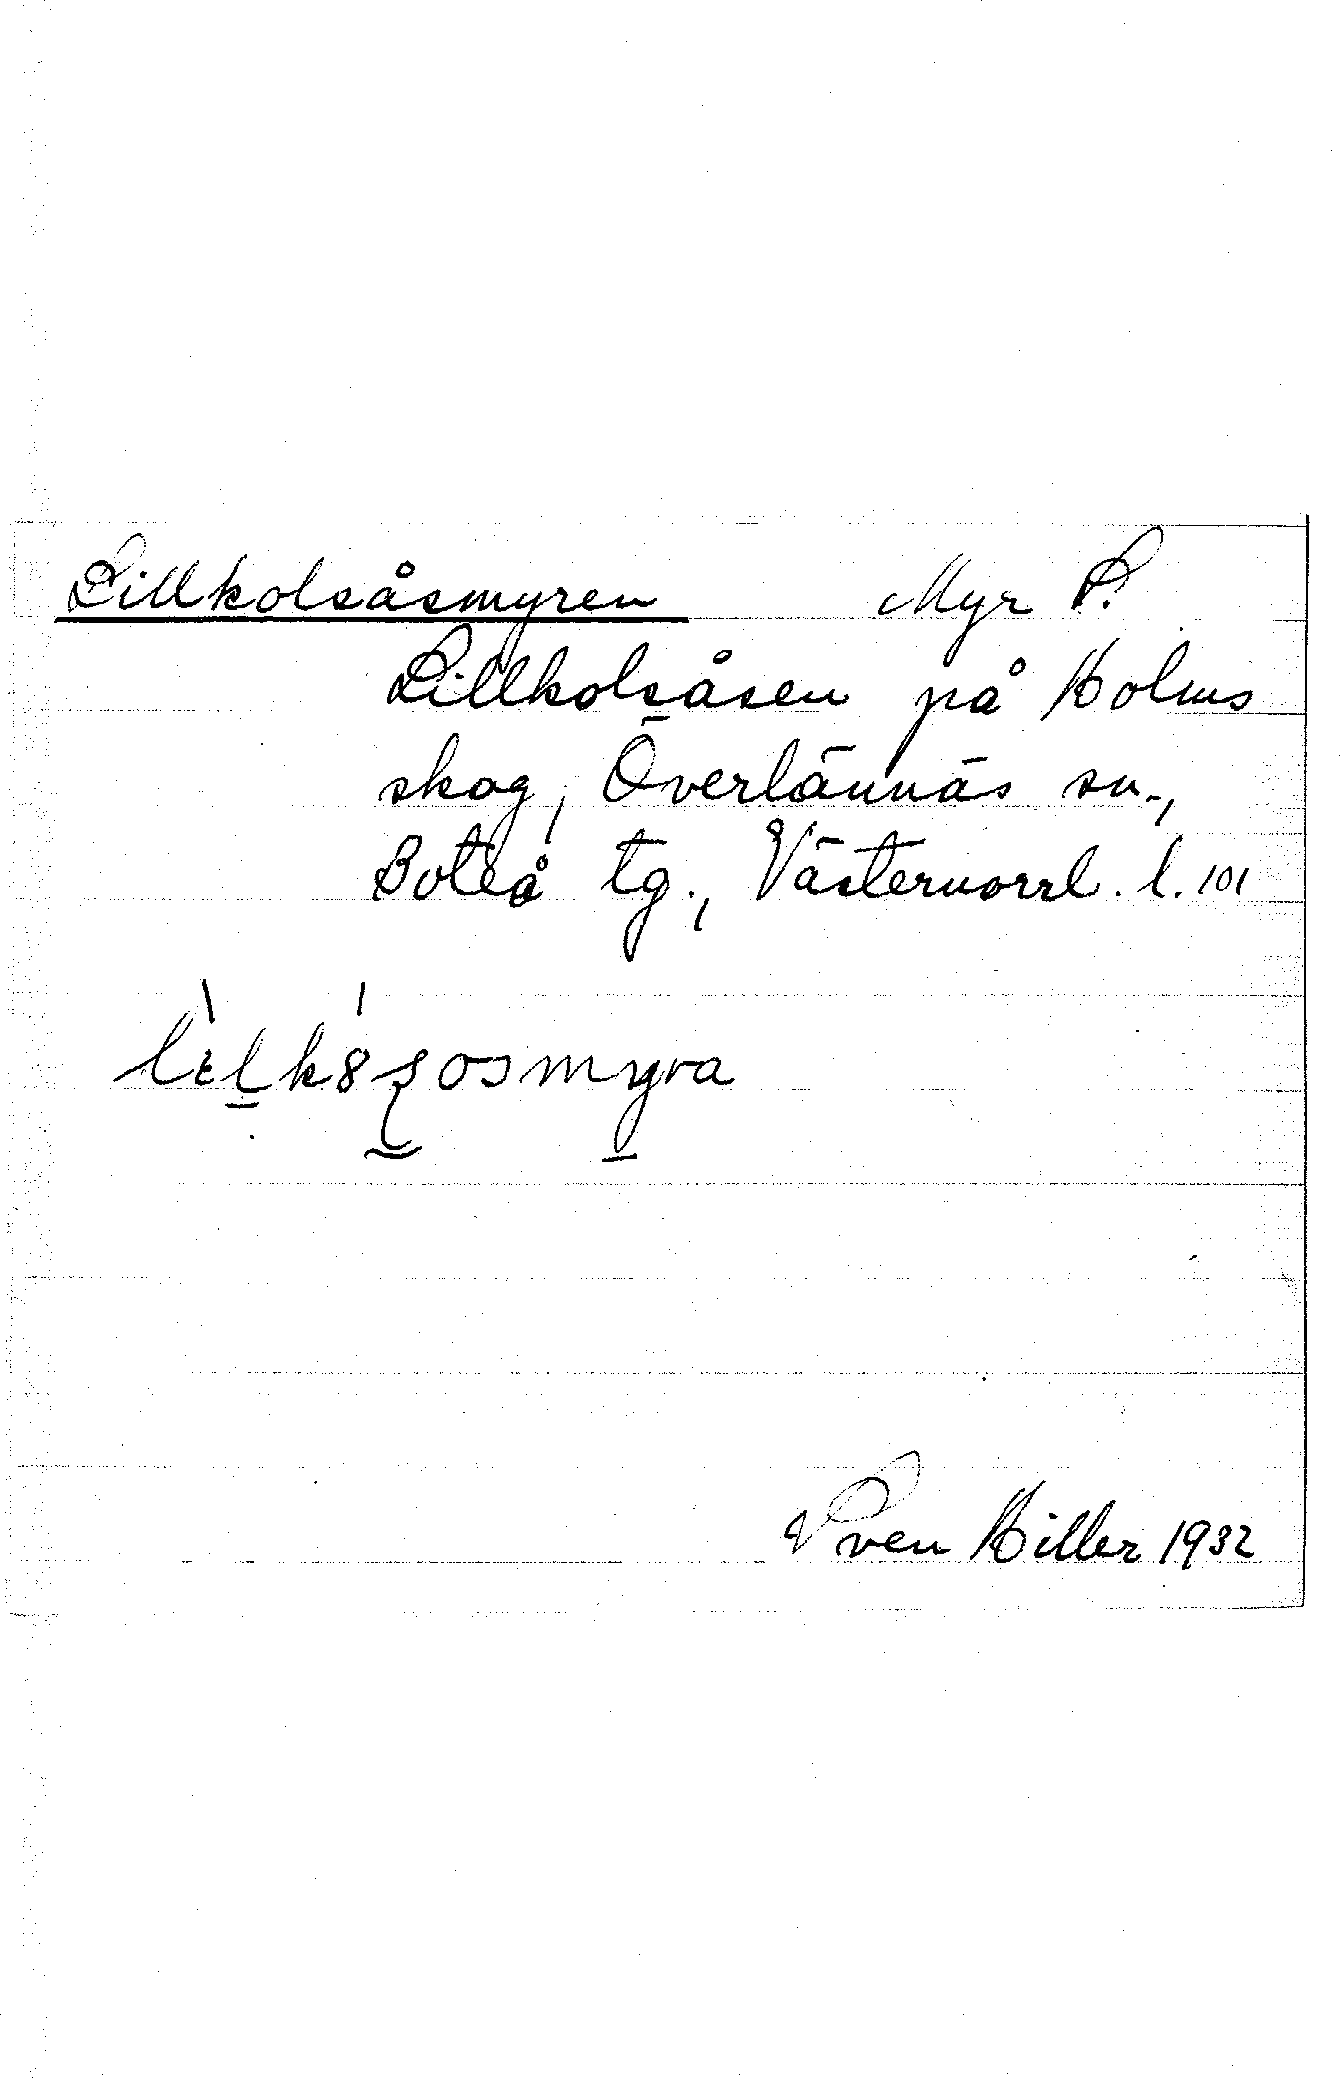 Lillkolsåsmyren Myr S.
Lillkolsåsen på Holms
skog, Överlännäs sn.,
Boteå tg., Västernorrl. l. 101
Sven Hiller 1932